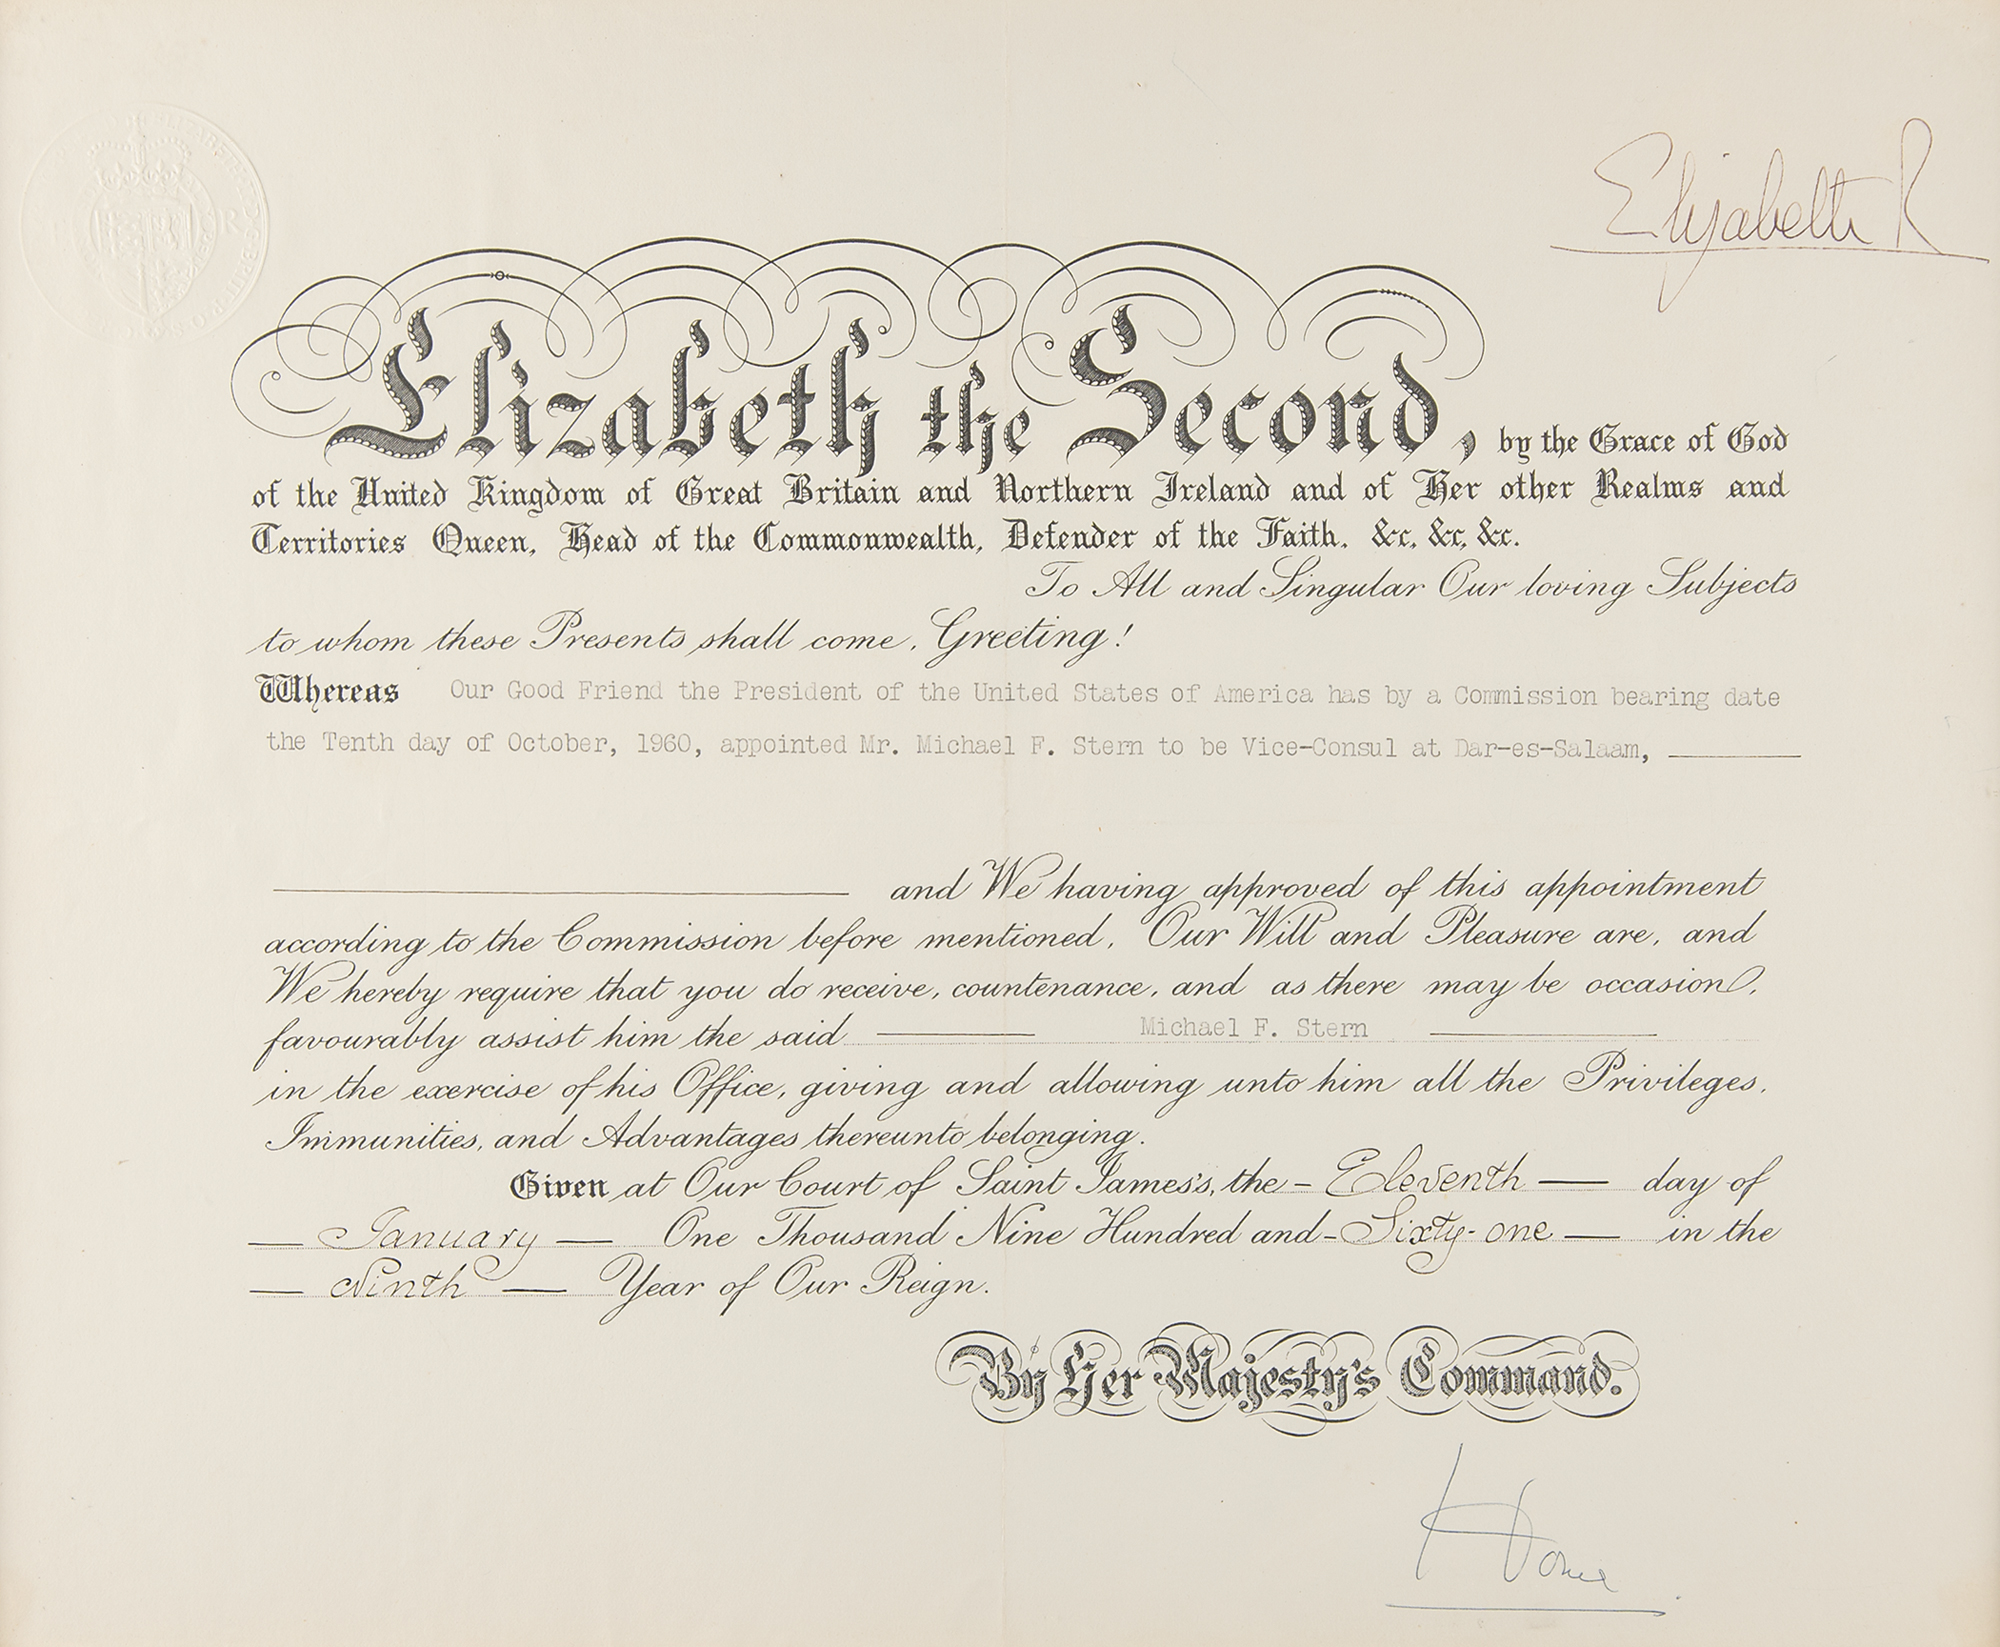 Elizabeth R
Elizabeth the Second, by the Grace of God
of the United Kingdom of Great Britain and Northern Ireland and of Her other Realms and
Territories Queen, Head of the Commonwealth, Defender of the Faith, &c. &c. &c.
To All and Singular Our loving Subjects
to whom these Presents shall come, Greeting!
Whereas Our Good Friend the President of the United States of America has by a Commission bearing date
the Tenth day of October, 1960, appointed Mr. Michael F. Stern to be Vice-Consul at Dar-es-Salaam,
and We having approved of this appointment
according to the Commission before mentioned, Our Will and Pleasure are, and
We hereby require that you do receive, countenance, and as there may be occasion,
favourably assist him the said Michael F. Stern
in the exercise of his Office, giving and allowing unto him all the Privileges,
Immunities, and Advantages thereunto belonging.
Given at Our Court of Saint James's, the - Eleventh — day of
— January — One Thousand Nine Hundred and - Sixty-one — in the
— Ninth — Year of Our Reign.
By Her Majesty's Command.
Home